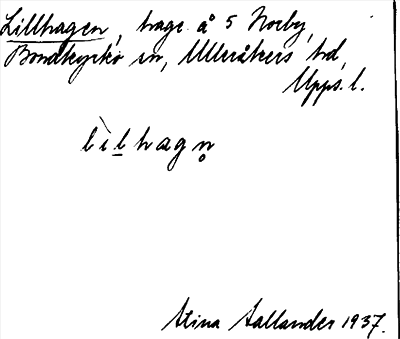 Lillhagen, hage å 5 Norby,
Bondkyrko sn, Ulleråkers hd,
Upps. l.
lìl̲hagn̥
Stina Sallander 1937.